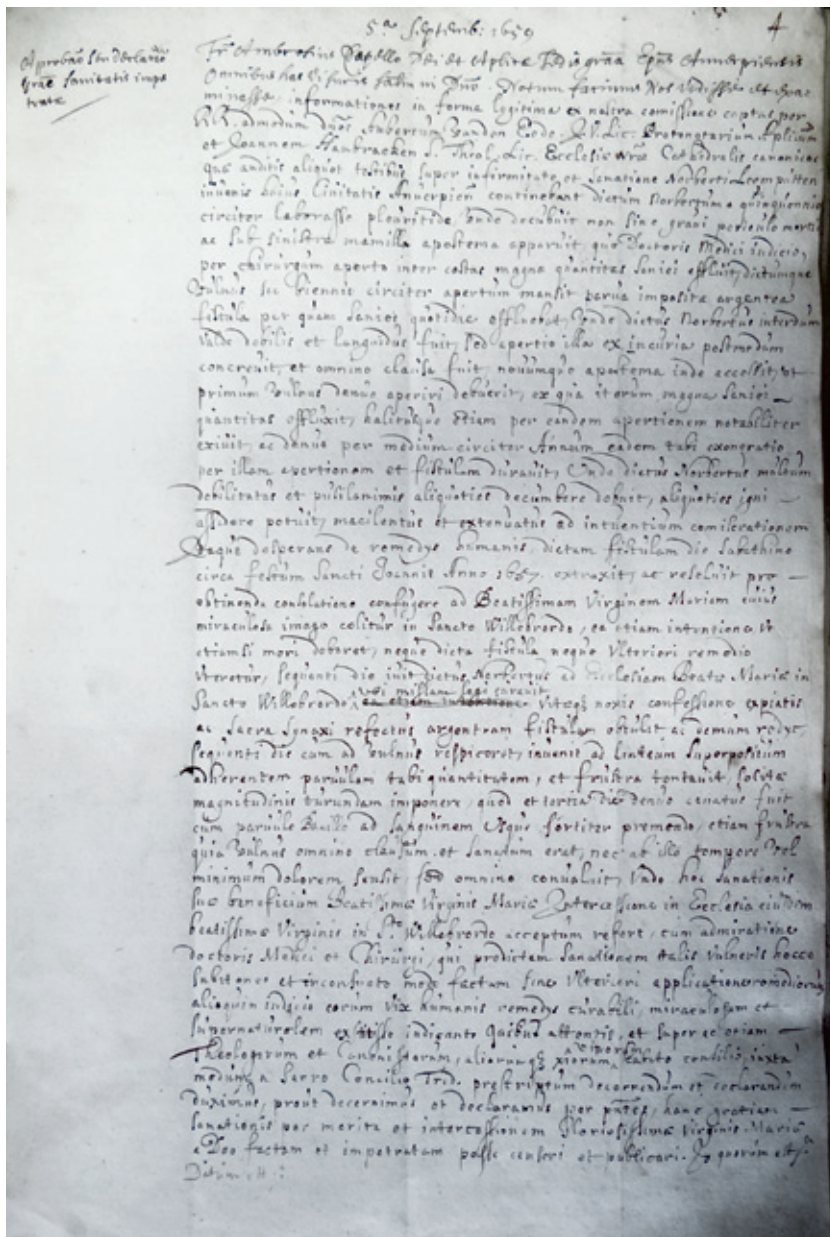 5ª Septemb: 1659
4
Approbão seu declaratio
graẽ sanitatis impe
tratæ
Fr. Ambrosius Capello Dei et Aplicæ Sedis grãa Epũs Antverpiensis
Omnibus has visuris saltm in Dño. Notum facimus Nos vidisse et exa
minasse, informationes in forma legitima ex nostra comissione captas per
R.R. admodum Dños Aubertum vanden Eede J.V. Lic. Protonotarium Aplicum
et Joannem Hanbracken S. Theol. Lic. Ecclesiæ nræ Cathedralis canonicos
quæ auditis aliquot testibus super infirmitate et sanatione Norberti Leemputten
iuvenis huius Civitatis Antverpieñ continebant dictum Norbertum a quinquennio
circiter laborasse pleuritide, unde decubuit non sine gravi periculo mortis
ac sub sinistra mamilla apostema apparuit, quo Doctoris Medici iudicio,
per chirurgum aperto inter costas magna quantitas saniei effluit, dictumque
vulnus sic biennio circiter apertum mansit parva imposita argentea
fistula per quam sanies quotidie effluebat, unde dictus Norbertus interdum
valde debilis et languidus fuit, sed apertio illa ex incuria postmodum
concrevit, et omnino clausa fuit, novumque apostema inde accessit, ut
primum vulnus denuo aperiri debuerit, ex qua iterum magna saniei
quantitas effluxit, halitusque etiam per eandem apertionem notabiliter
exivit, ac denuo per medium circiter Annum eadem tabi exongratio
per illam apertionem et fistulam duravit, Unde dictus Norbertus multum
debilitatus et pusilanimis aliquoties decumbere debuit, aliquoties igni
assidere potuit, macilentus et extenuatus ad intuentium comiserationem
Itaque desperans de remedys humanis, dictam fistulam die sabathino
circa festum Sancti Joannis Anno 1657. extraxit, ac resoluit pro
obtinenda consolatione confugere ad Beatissimam Virginem Mariam cuius
miraculosa imago colitur in Sancto Willebrordo, ea etiam intentione ut
etiamsi mori deberet, neque dicta fistula neque ulteriori remedio
uteretur, sequenti die ivit dictus Norbertus ad Ecclesiam Beatæ Mariæ in
Sancto Willebrordo ubi missam legi curavit ea etiam intentione vitæq3 noxis confessione expiatis
ac sacra synaxi refectus argenteam fistulam obtulit, ac demum redyt,
sequenti die cum ad vulnus respiceret, invenit ad linteum superpositum
adherentem parvulam tabi quantitatem, et frustra tentavit, solitæ
magnitudinis turundam imponere, quod et tertia die denuo conatus fuit
cum parvulo Bacillo ad sanguinem usque fortiter premendo, etiam frustra
quia vulnus omnino clausum et sanatum erat, nec ab illo tempore vel
minimum dolorem sensit, sed omnino convaluit, unde hoc sanationis
suæ beneficium Beatissimæ Virginis Mariæ Intercessione in Ecclesia eiusdem
beatissimæ Virginis in Sto Willebrordo acceptum refert, cum admiratione
doctoris Medici et Chirurgi, qui predictam sanationem talis vulneris hocce
subitaneo et inconsueto modo factam sine ulteriori applicatione remediorum
alioquin iudicio eorum vix humanis remedys curabili, miraculosam et
supernaturalem extitisse indicante quibus attentis, et super ac etiam
Theologorum et Canonistarum, aliorumq3 piorum virorum habito consilio, iuxta
modum a Sacro Concilio Trid. prescriptum decernendum et declarandum
duximus, prout decernimus et declaramus per pñtes, hanc gratiam
sanationis per merita et intercessionem Gloriosissimæ Virginis Mariæ
a Deo factam et impetratam posse censeri et publicari. In quorum etc.
Datum